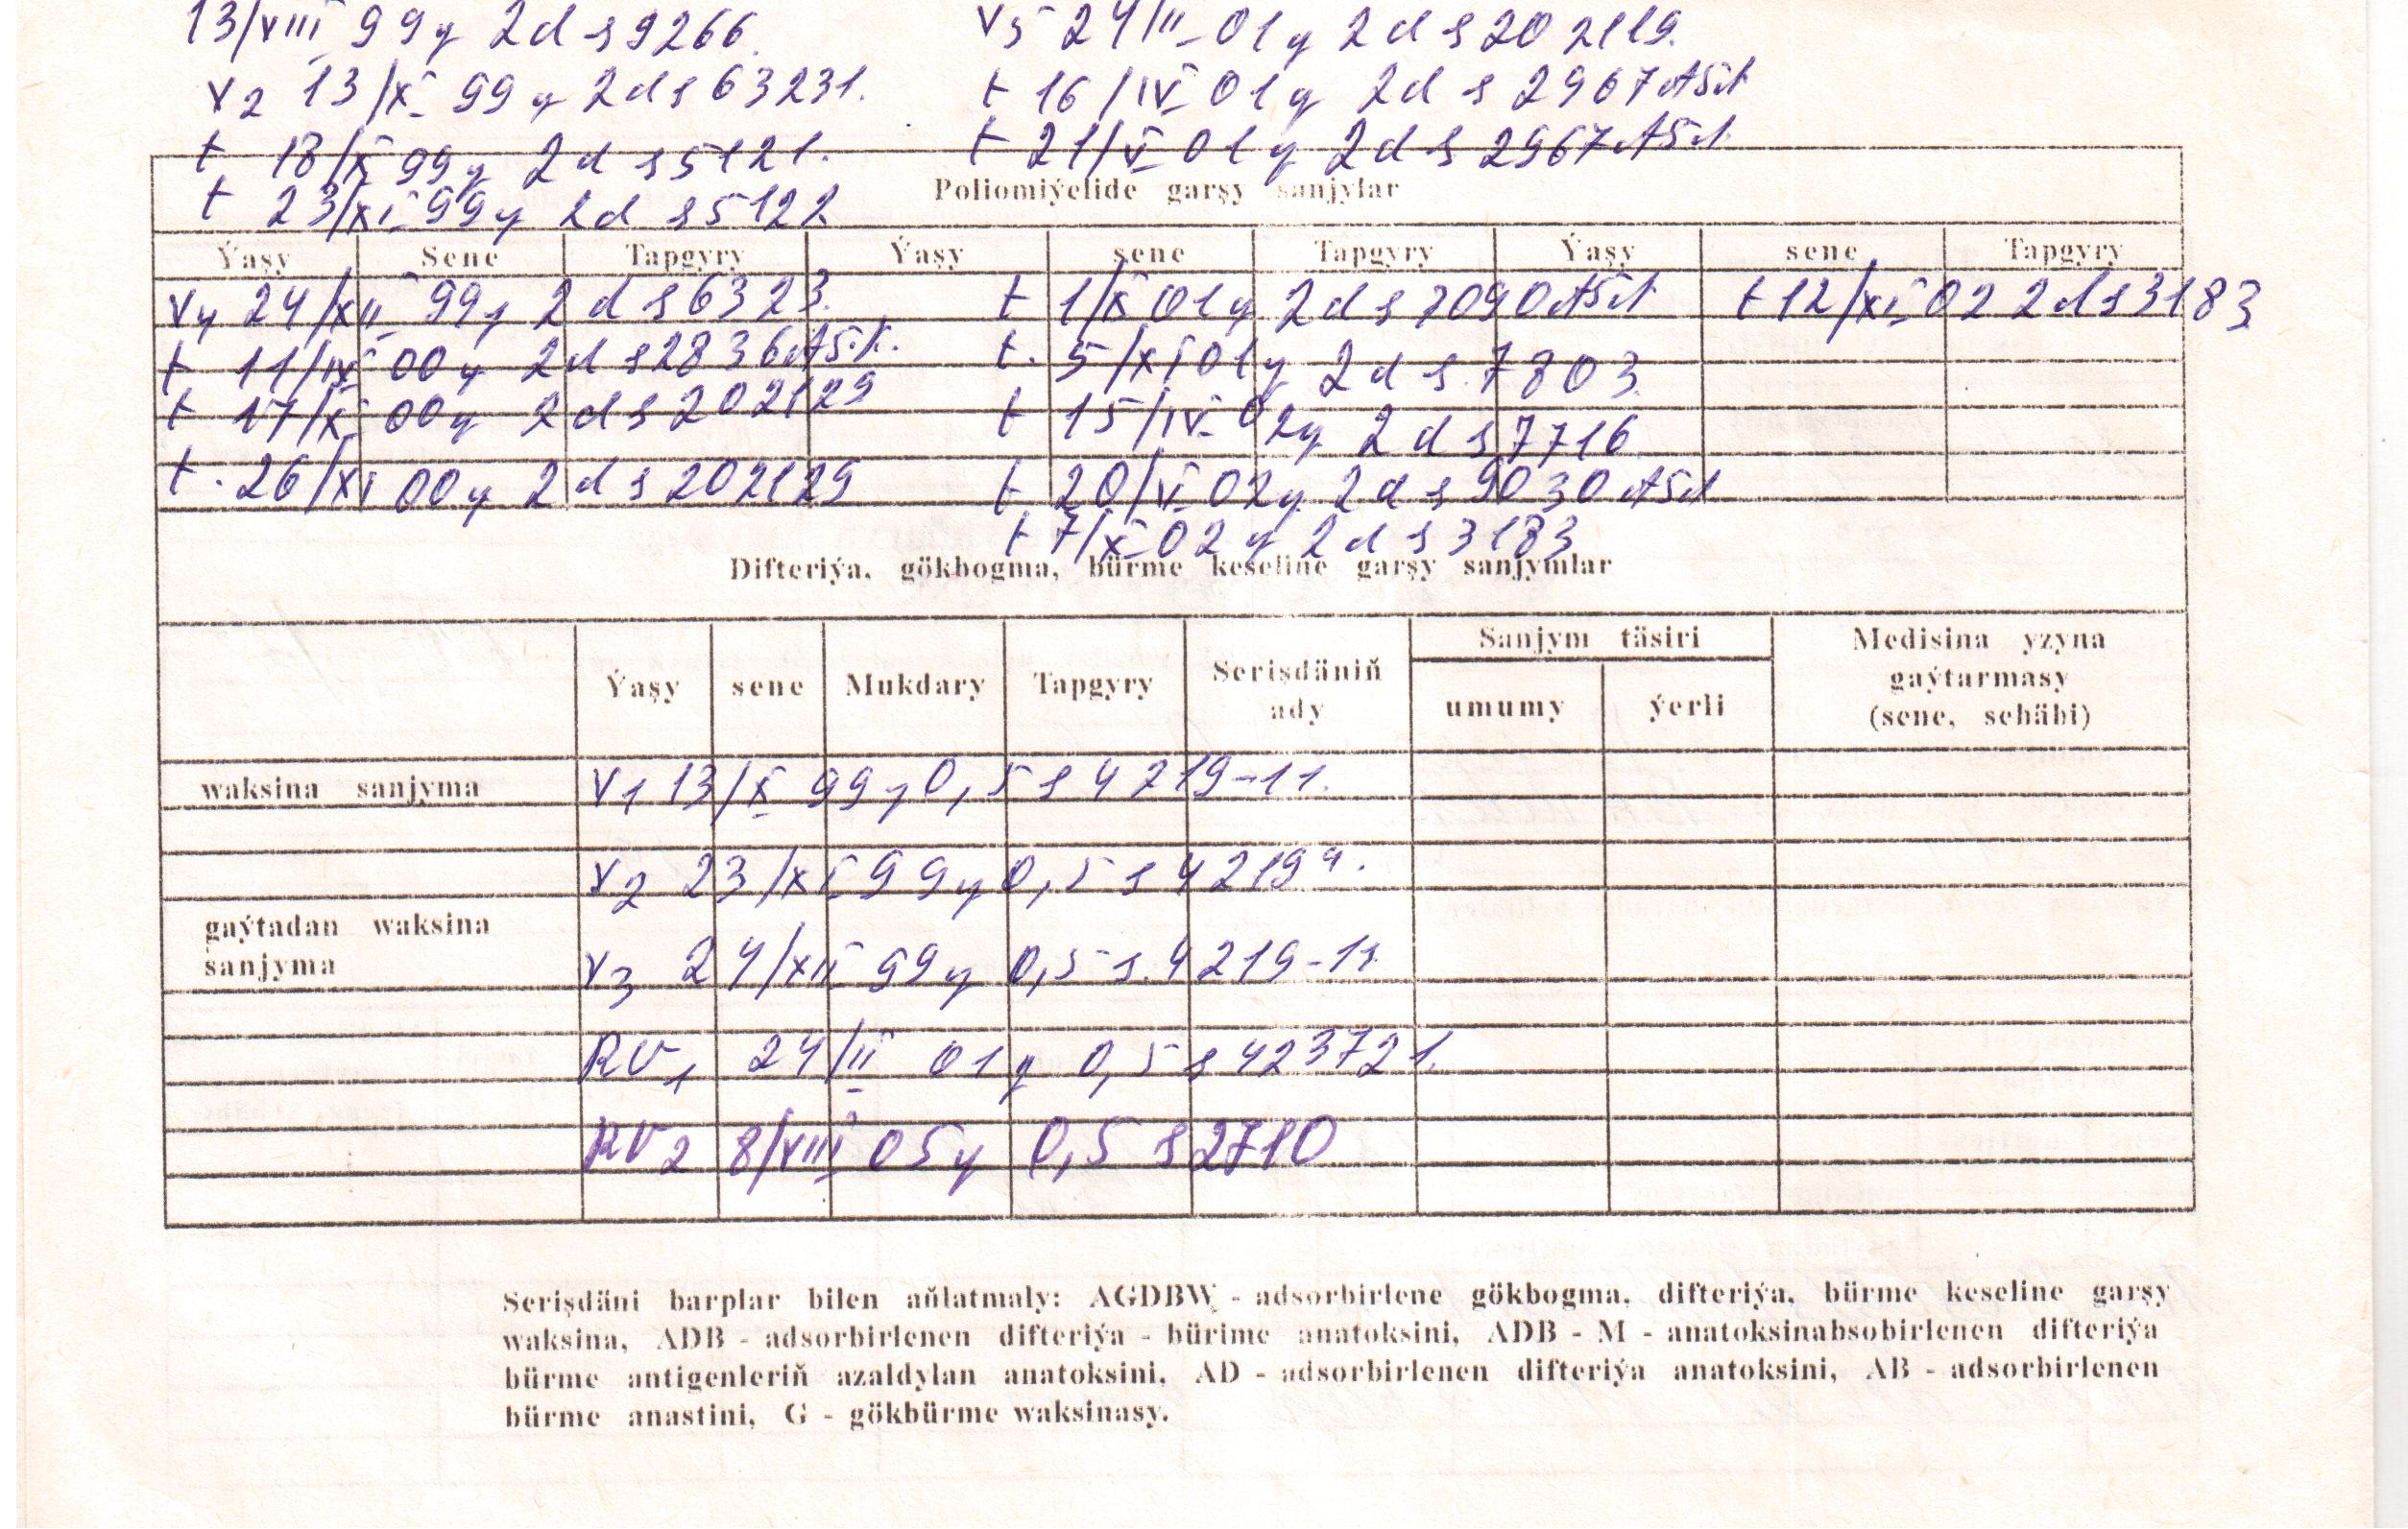 13/VIII 99y 2d s 9266.
V5 24/II-01y 2d s 202119.
V2 13/X- 99y 2d s 63231.
t 16/IV 01y 2d s 2967 AŞA
t 18/X 99y 2d s 5121.
t 21/V-01y 2d s 2967 AŞA
t 23/XI-99y 2d s 5122
Poliomiýelide garşy sanjylar
Ýaşy Sene Tapgyry Ýaşy sene Tapgyry Ýaşy sene Tapgyry
V4 24/XII 99y 2d s 6323.
t 1/X 01y 2d s 7090 AŞA
t 12/XI-02 2d s 3183
t 11/IV 00y 2d s 2836 AŞA.
t. 5/XI 01y 2d s. 7803.
t 17/X 00y 2d s 202129
t 15/IV-02y 2d s 7716
t. 26/XI 00y 2d s 202129
t 20/V-02y 2d s 9030 AŞA
t 7/X-02y 2d s 3183
Difteriýa, gökbogma, bürme keseline garşy sanjymlar
Ýaşy sene Mukdary Tapgyry Serişdäniň ady Sanjym täsiri Medisina yzyna gaýtarmasy (sene, sebäbi)
umumy ýerli
waksina sanjyma V1 13/X 99y 0,5 s 4219-11.
V2 23/XI 99y 0,5 s 4219
gaýtadan waksina
sanjyma V3 24/XII 99y 0,5 s. 4219-11.
RV1 24/II 01y 0,5 s 423721.
RV2 8/VIII 05y 0,5 s 2710
Serişdäni barplar bilen aňlatmaly: AGDBW - adsorbirlene gökbogma, difteriýa, bürme keseline garşy
waksina, ADB - adsorbirlenen difteriýa - bürime anatoksini, ADB - M - anatoksinabsobirlenen difteriýa
bürme antigenleriň azaldylan anatoksini, AD - adsorbirlenen difteriýa anatoksini, AB - adsorbirlenen
bürme anastini, G - gökbürme waksinasy.